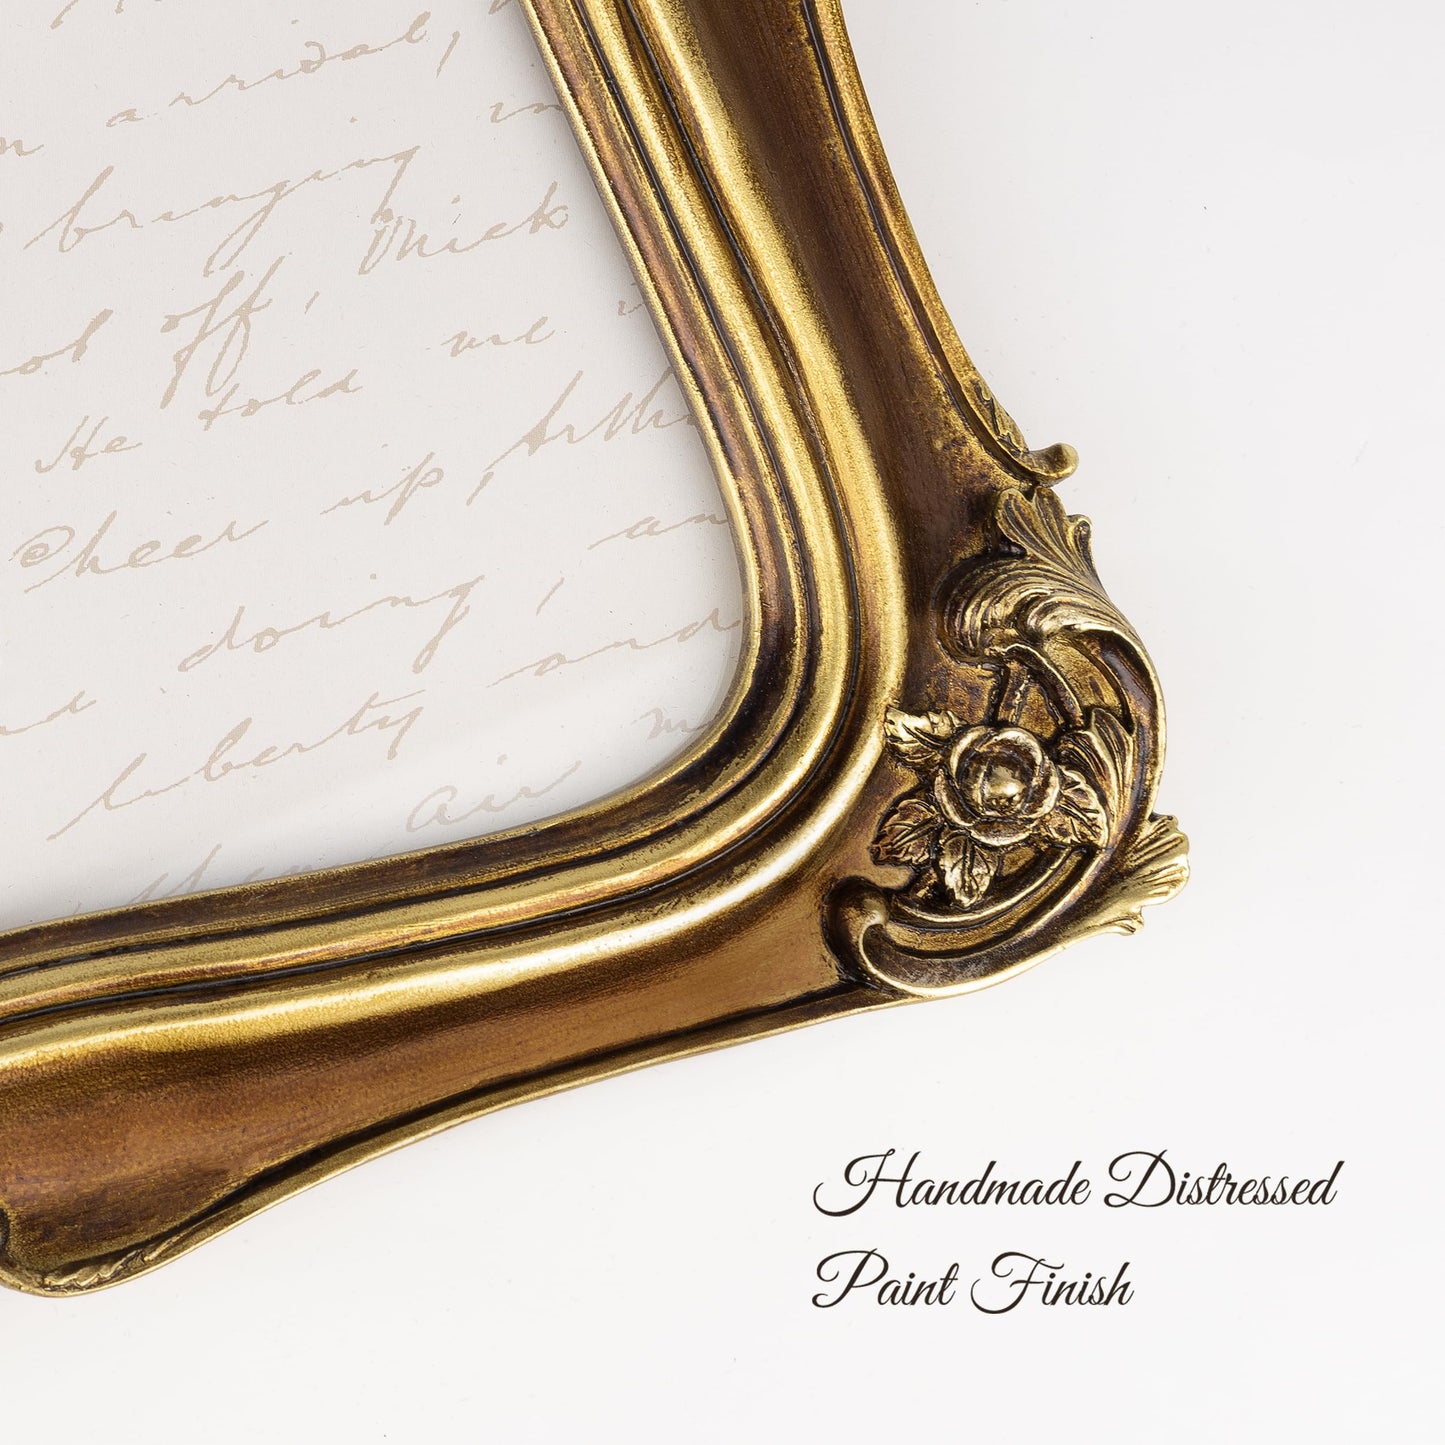 arrival,
bringing in
off, thick
He told me
Cheer up, Arthu
doing, an
liberty and
air
Handmade Distressed
Paint Finish